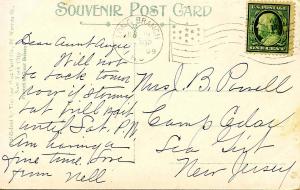 SOUVENIR POST CARD
BRANCH
U.S. POSTAGE
ONE CENT
Dear Aunt Annie
Will not
go to town
now if stormy
but will wait
until Sat. P.M.
Am having a
fine time. Love
from Nell
Mrs J. B. Powell
Camp Cedar
Sea Girt
New Jersey